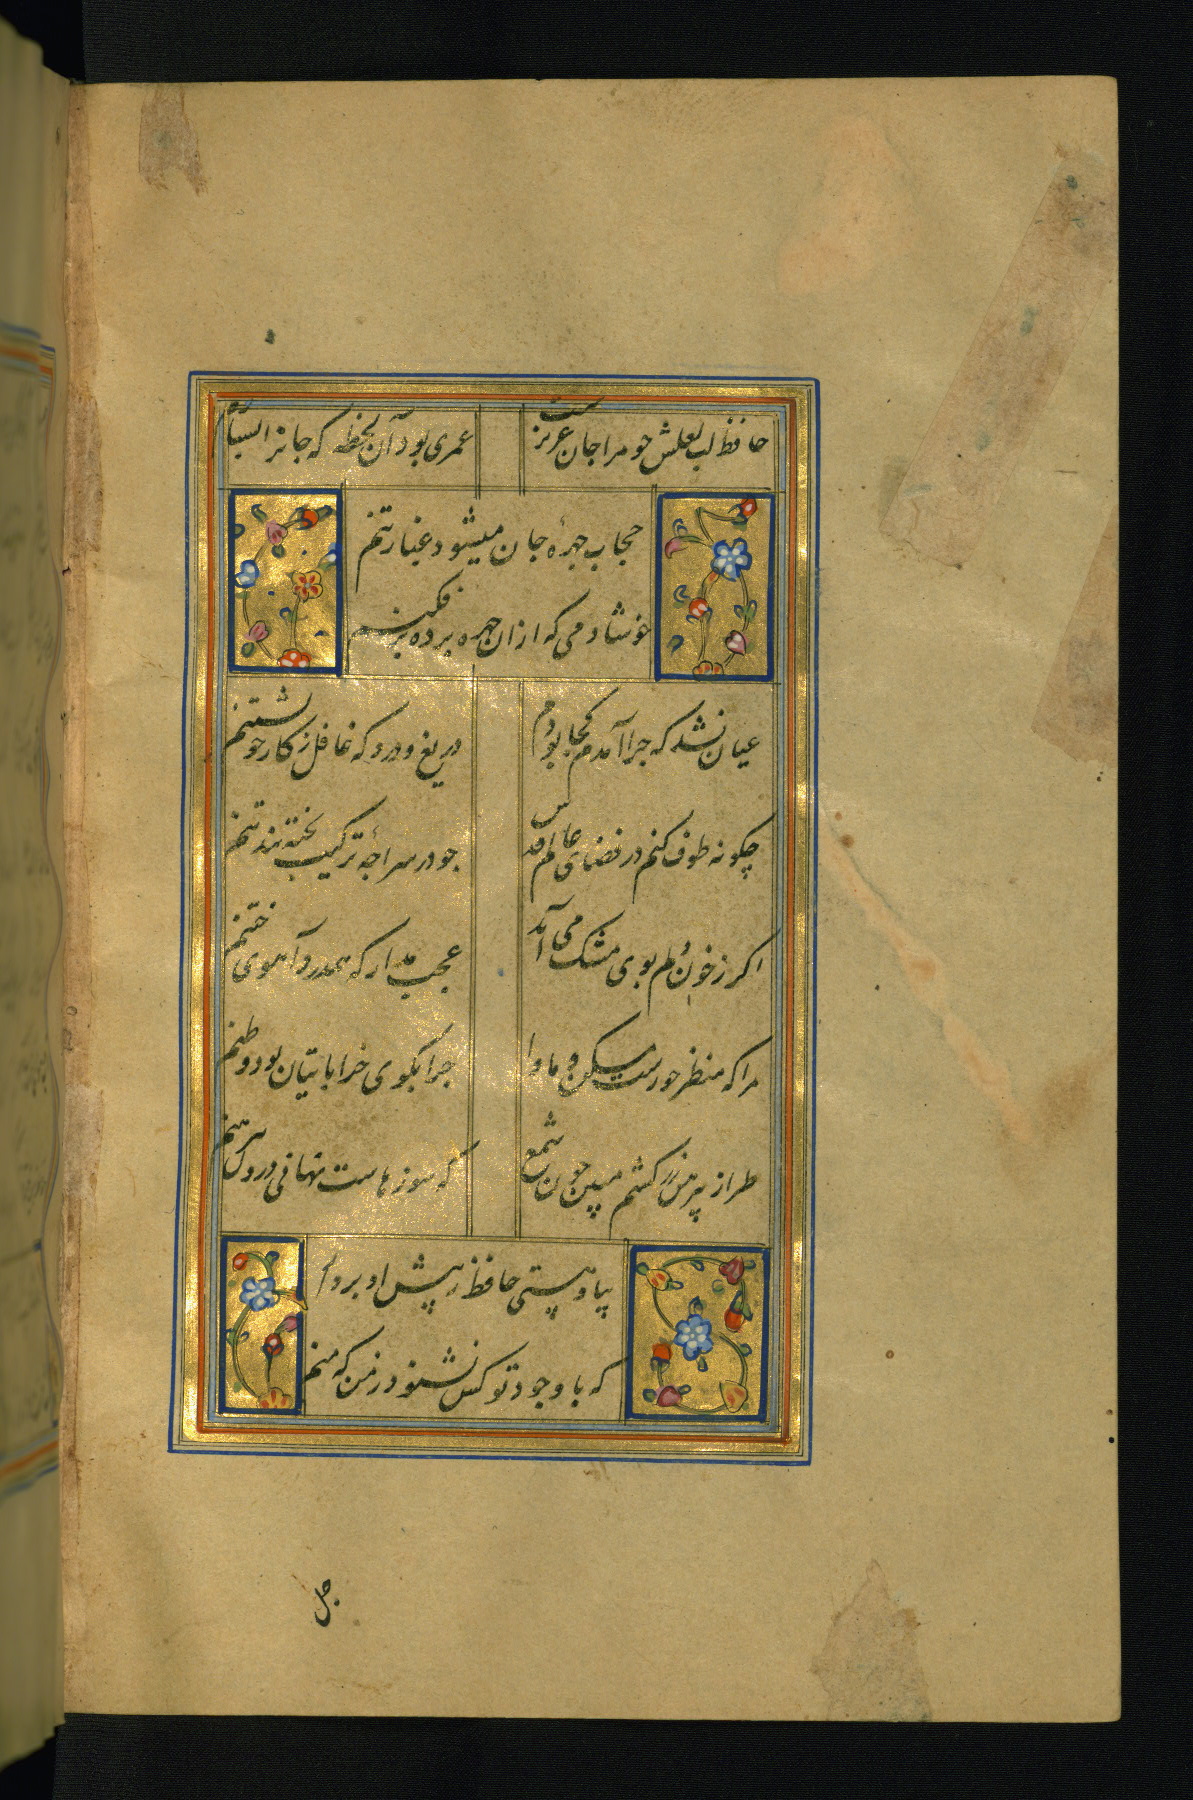 حافظ لب لعلش چو مرا جان عزیزست
عمری بود آن لحظه که جانرا بلب آرم
حجاب چهرهٔ جان میشود غبار تنم
خوشا دمی که ازان چهره پرده برفکنم
عیان نشد که چرا آمدم کجا بودم
دریغ و درد که غافل ز کار خویشتنم
چکونه طوف کنم در فضای عالم قدس
چو در سراچهٔ ترکیب تخته بند تنم
اکر ز خون دلم بوی مشک می آید
عجب مدار که همدرد آهوی ختنم
مرا که منظر حورست مسکن و ماوا
چرا بکوی خراباتیان بود وطنم
طراز پیرهن زرکشم مبین چون شمع
که سوزهاست نهانی درون پیرهنم
بیا و هستی حافظ ز پیش او بردار
که با وجود تو کس نشنود ز من که منم